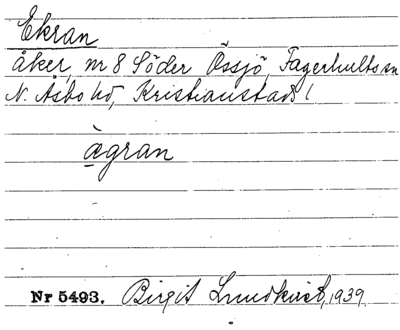 Ekran
åker, nr 8 Söder Össjö, Fagerhults sn
N. Åsbo hd, Kristianstads l
àgran
Nr 5493. Birgit Lundkvist, 1939